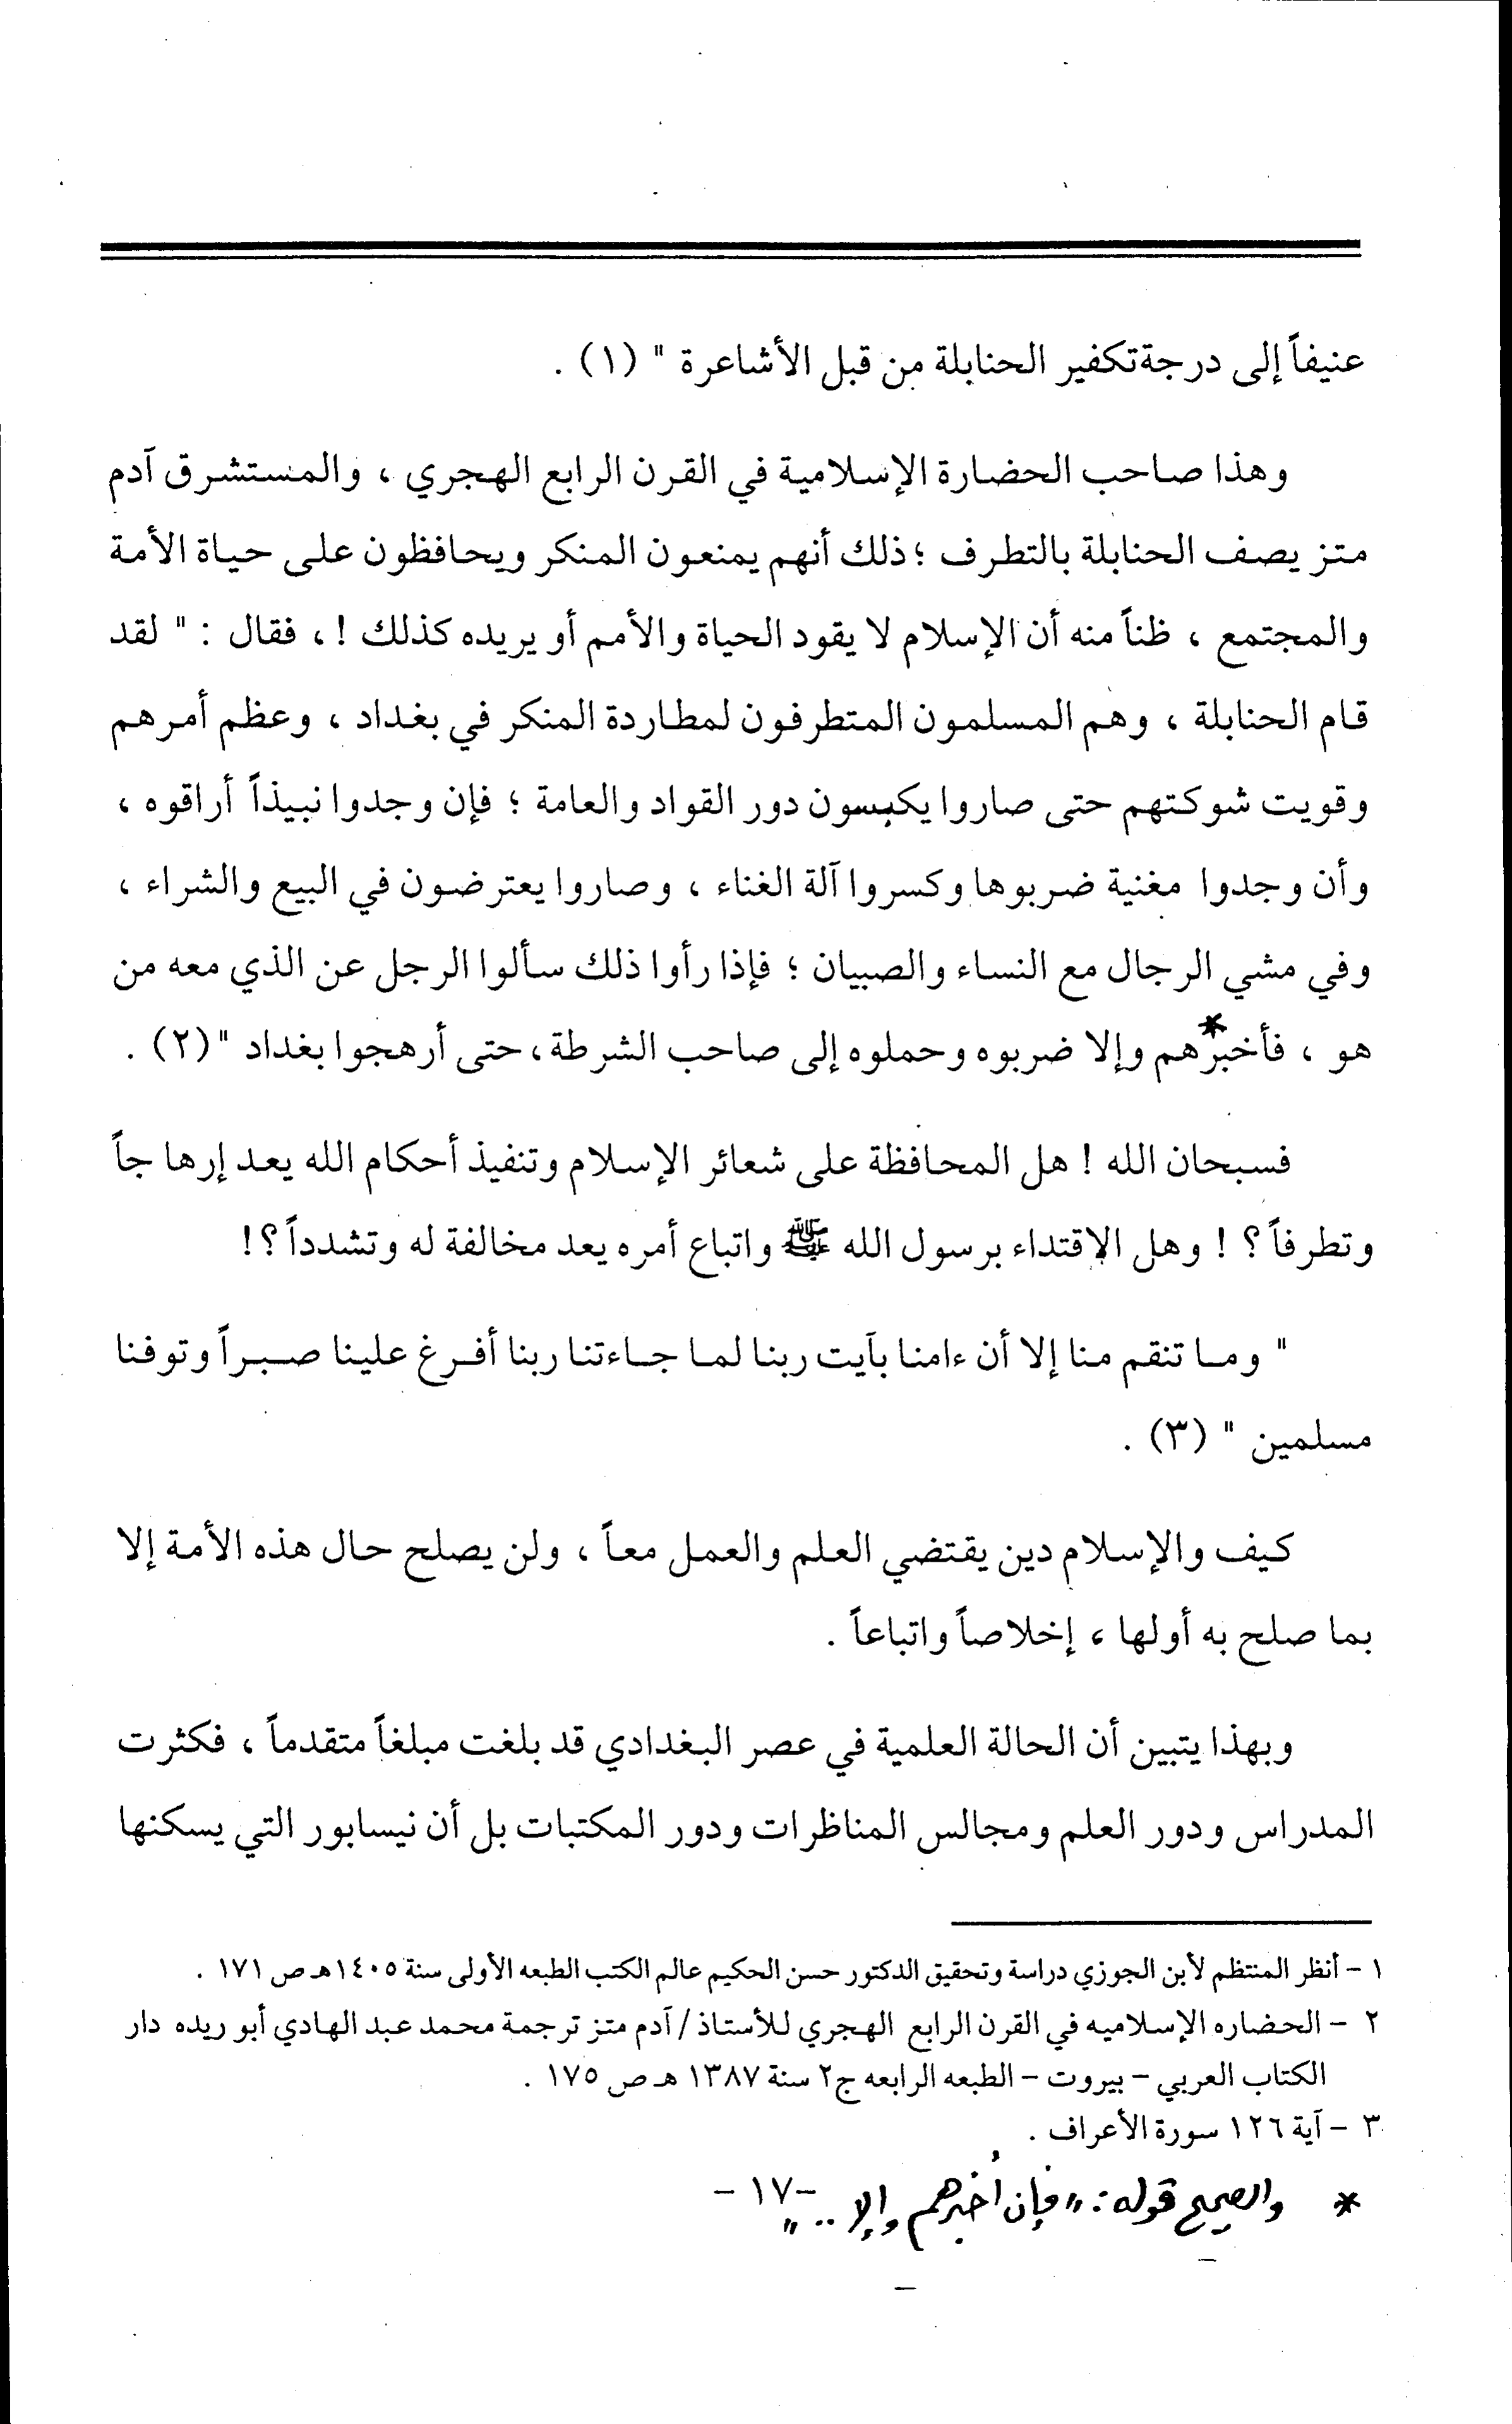 عنيفاً إلى درجة تكفير الحنابلة من قبل الأشاعرة " (١) .
وهذا صاحب الحضارة الإسلامية في القرن الرابع الهجري ، والمستشرق آدم
متز يصف الحنابلة بالتطرف ؛ ذلك أنهم يمنعون المنكر ويحافظون على حياة الأمة
والمجتمع ، ظناً منه أن الإسلام لا يقود الحياة والأمم أو يريده كذلك ! ، فقال : " لقد
قام الحنابلة ، وهم المسلمون المتطرفون لمطاردة المنكر في بغداد ، وعظم أمرهم
وقويت شوكتهم حتى صاروا يكبسون دور القواد والعامة ؛ فإن وجدوا نبيذاً أراقوه ،
وأن وجدوا مغنية ضربوها وكسروا آلة الغناء ، وصاروا يعترضون في البيع والشراء ،
وفي مشي الرجال مع النساء والصبيان ؛ فإذا رأوا ذلك سألوا الرجل عن الذي معه من
هو ، فأخبرهم* وإلا ضربوه وحملوه إلى صاحب الشرطة ، حتى أرهجوا بغداد " (٢) .
فسبحان الله ! هل المحافظة على شعائر الإسلام وتنفيذ أحكام الله يعد إرهاجاً
وتطرفاً ؟ ! وهل الاقتداء برسول الله ﷺ واتباع أمره يعد مخالفة له وتشدداً ؟ !
" وما تنقم منا إلا أن ءامنا بآيت ربنا لما جاءتنا ربنا أفرغ علينا صبراً وتوفنا
مسلمين " (٣) .
كيف والإسلام دين يقتضي العلم والعمل معاً ، ولن يصلح حال هذه الأمة إلا
بما صلح به أولها ، إخلاصاً واتباعاً .
وبهذا يتبين أن الحالة العلمية في عصر البغدادي قد بلغت مبلغاً متقدماً ، فكثرت
المدراس ودور العلم ومجالس المناظرات ودور المكتبات بل أن نيسابور التي يسكنها
١ - أنظر المنتظم لأبن الجوزي دراسة وتحقيق الدكتور حسن الحكيم عالم الكتب الطبعه الأولى سنة ١٤٠٥هـ ص ١٧١ .
٢ - الحضاره الإسلاميه في القرن الرابع الهجري للأستاذ / آدم متز ترجمة محمد عبد الهادي أبو ريده دار
الكتاب العربي - بيروت - الطبعه الرابعه ج٢ سنة ١٣٨٧ هـ ص ١٧٥ .
٣ - آية ١٢٦ سورة الأعراف .
* والصحيح قوله : " فإن أخبرهم وإلا .. "
- ١٧ -